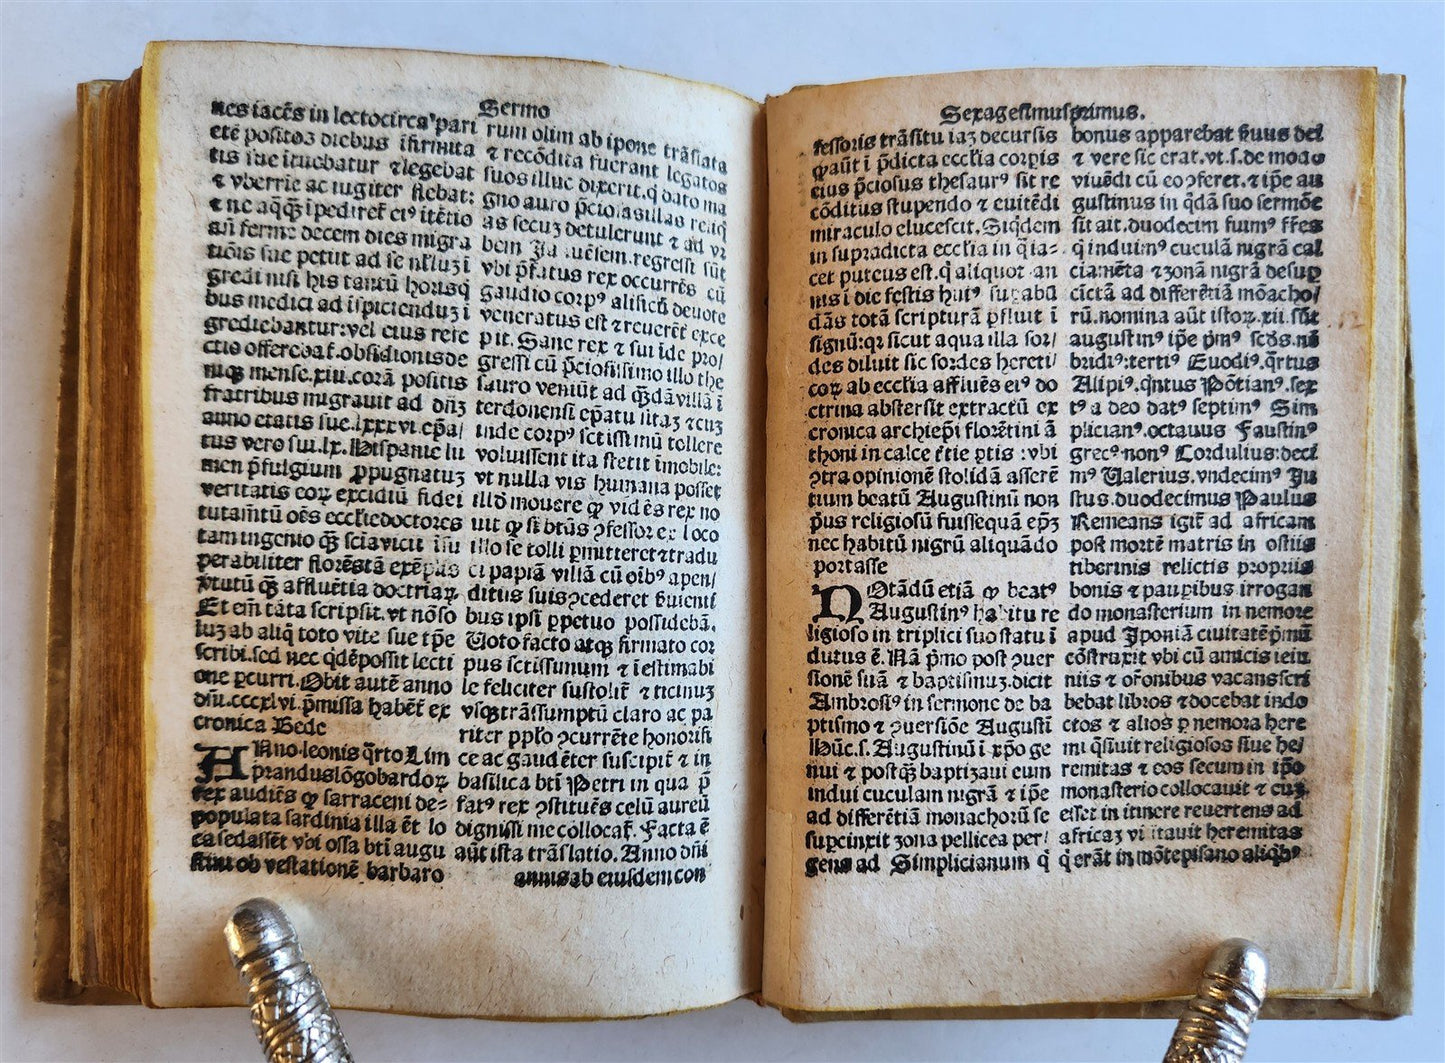 Sermo
nes iacēs in lectocirca' pari
etē positoꝫ diebus ĩfirmita
tis sue ituebatur ⁊legebat
⁊ vberrie ac iugiter flebat:
⁊ ne aq̄ꝗ̄ ĩpediret̄ eiꝰ itētio
añ ferme decem dies migra
tiõis sue petijt ad se nłluꝫ ĩ
gredi nisi his tantū horisq̨
bus medici ad ĩspiciendum ĩ
grediebantur:vel eius refe
ctio offerebat̄.obsidionis de
niqꝫ mense.xiii.corā positis
fratribus migrauit ad dñꝫ
anno etatis sue.lxxxvi.ep̄a/
tus vero sui.lx. Hispanie lu
men p̄fulgium ꝓpugnatuꝫ
veritatis coꝝ excidiū fidei
tutam̄tū oēs ecclie doctores
tam ingenio qꝫ̄ sciavicit ĩsu
perabiliter florēstā exēplis
v̄tutū qꝫ̄ affluētia doctriaꝝ
Et em̄ tāta scripsit.vt nõso
luꝫ ab aliq̄ toto vite sue tp̄e
scribi.sed nec q̇dē possit lecti
one ꝑcurri. Obijt autē anno
dñi.ccccxlvi.p̄missa habēt̄ ex
cronica Bede
ANno leonis q̄rto Lim
prandus lõgobardoꝝ
rex audiēs ꝙ sarraceni de=
populata sardinia illa ēt lo
ca fedassēt vbi ossa bt̄i augu
stini ob vastationē barbaro
rum olim ab ipone trāslata
⁊ recõdita fuerant legatos
suos illuc dixerit.q̇ dato ma
gno auro p̄ciosas illas reliq̇
as secuꝫ detulerunt ⁊ ad vr
bem Januēsem.regressi sūt
vbi p̄fatus rex occurrēs cū
gaudio corpꝰ alisicū deuote
veneratus est ⁊reuerēt̄ exce
pit. Sane rex ⁊ sui ide pro/
gressi cū p̄ciosissimo illo the
sauro veniūt ad q̄ꝫdā villā ĩ
terdonensi ep̄atu sitaꝫ ⁊cuꝫ
inde corpꝰ sctissimū tollere
voluissent ita stetit ĩmobile:
vt nulla vis humana posset
illd̄ mouere ꝙ vidēs rex no
uit ꝙ si bt̄us ꝯfessor ex loco
illo se tolli ꝑmitteret⁊tradu
ci papiā villā cū oĩbꝰ apen/
ditijs suis ꝯcederet suientī
bus ipsi ꝑpetuo possidebā.
Voto facto atqꝫ firmato cor
pus sctissimum ⁊ ĩestimabi
le feliciter sustolit̄ ⁊ ticinuꝫ
vsqꝫ trāssumptū claro ac pa
riter pplo ꝯcurrēte honorifi
ce ac gaudēter suscipit̄ ⁊ in
basilica bt̄i Petri in qua p̄
fatꝰ rex ꝯstituēs celū aureū
dignissime collocat̄. Facta ē
aūt ista trāslatio. Anno dñi
annis ab eiusdem con
Sexagesimusprimus.
fessoris trāsitu iaꝫ decursis
ꝙ aūt ĩ p̄dicta ecclia corpis
eius p̄ciosus thesaurꝰ sit re
cõditus stupendo ⁊ euitēdi
miraculo elucescit. Siq̇dem
in supradicta ecclia in q̄ ia=
cet puteus est.q̇ aliquot an
nis ĩ die festis huiꝰ sup abū
dās totā scripturā ꝓfluit ĩ
signū:qꝛ sicut aqua illa sor/
des diluit sic sordes hereti/
coꝝ ab ecclia affluēs eiꝰ do
ctrina abstersit extractū ex
cronica archiep̄i florētini ā
thoni in calce t̄tie ptis : vbi
ꝯtra opinionē stolidā asserē
tium beatū Augustinū non
p̄us religiosū fuissequā ep̄ꝫ
nec habitū nigrū aliquādo
portasse
NOtādū etiā ꝙ beatꝰ
Augustinꝰ habitu re
ligioso in triplici suo statu ĩ
dutus ē. Nā p̄mo post ꝯuer
sionē suā ⁊ baptismuꝫ.dicit
Ambrosiꝰ in sermone de ba
ptismo ⁊ ꝯuersiõe Augustī
Hūc.s. Augustinū ĩ xp̄o ge
nui ⁊ postqꝫ̄ baptizaui eum
indui cuculam nigrā ⁊ ip̄e
ad differētiā monachorū se
supcinxit zona pellicea per/
gens ad Simplicianum q̇
bonus apparebat suus dei
⁊ vere sic erat.vt.s.de moa=
viuēdi cū eo ꝯferet.⁊ ip̄e au
gustinus in q̄dā suo sermõe
sit ait.duodecim fuimꝰ fr̄es
q̇ induimꝰ cuculā nigrā cal
ciamēta ⁊zonā nigrā desuꝑ
cīctā ad differētiā mõacho/
rū.nomina aūt istoꝝ.xii.sūt
augustinꝰ ip̄e p̄mꝰ scds.ne
bridiꝰ:tertiꝰ Euodiꝰ.q̄rtus
Alipiꝰ.q̇ntus Põtianꝰ.sex
tꝰ a deo datꝰ septimꝰ Sim
plicianꝰ.octauus Faustinꝰ
grecꝰ nonꝰ Cordulius:deci
mꝰ Valerius.vndecimꝰ Ju
stus.duodecimus Paulus
Remeans igit̄ ad africam
post mortē matris in ostijs
tiberinis relictis proprijs
bonis ⁊ pauꝑibus irrogan
do monasterium in nemore
apud Jponiā ciuitatē p̄mū
cõstruxit vbi cū amicis ieiu
nijs ⁊ or̄onibus vacans scri
bebat libros ⁊ docebat indo
ctos ⁊ alios ꝑ nemora here
mi q̄siuit religiosos siue he/
remitas ⁊ eos secum in ip̄o
monasterio collocauit ⁊ cuꝫ
esset in itinere reuertens ad
africaꝫ visitauit heremitas
q̇ erāt in mõtepisano aliq̇bꝰ